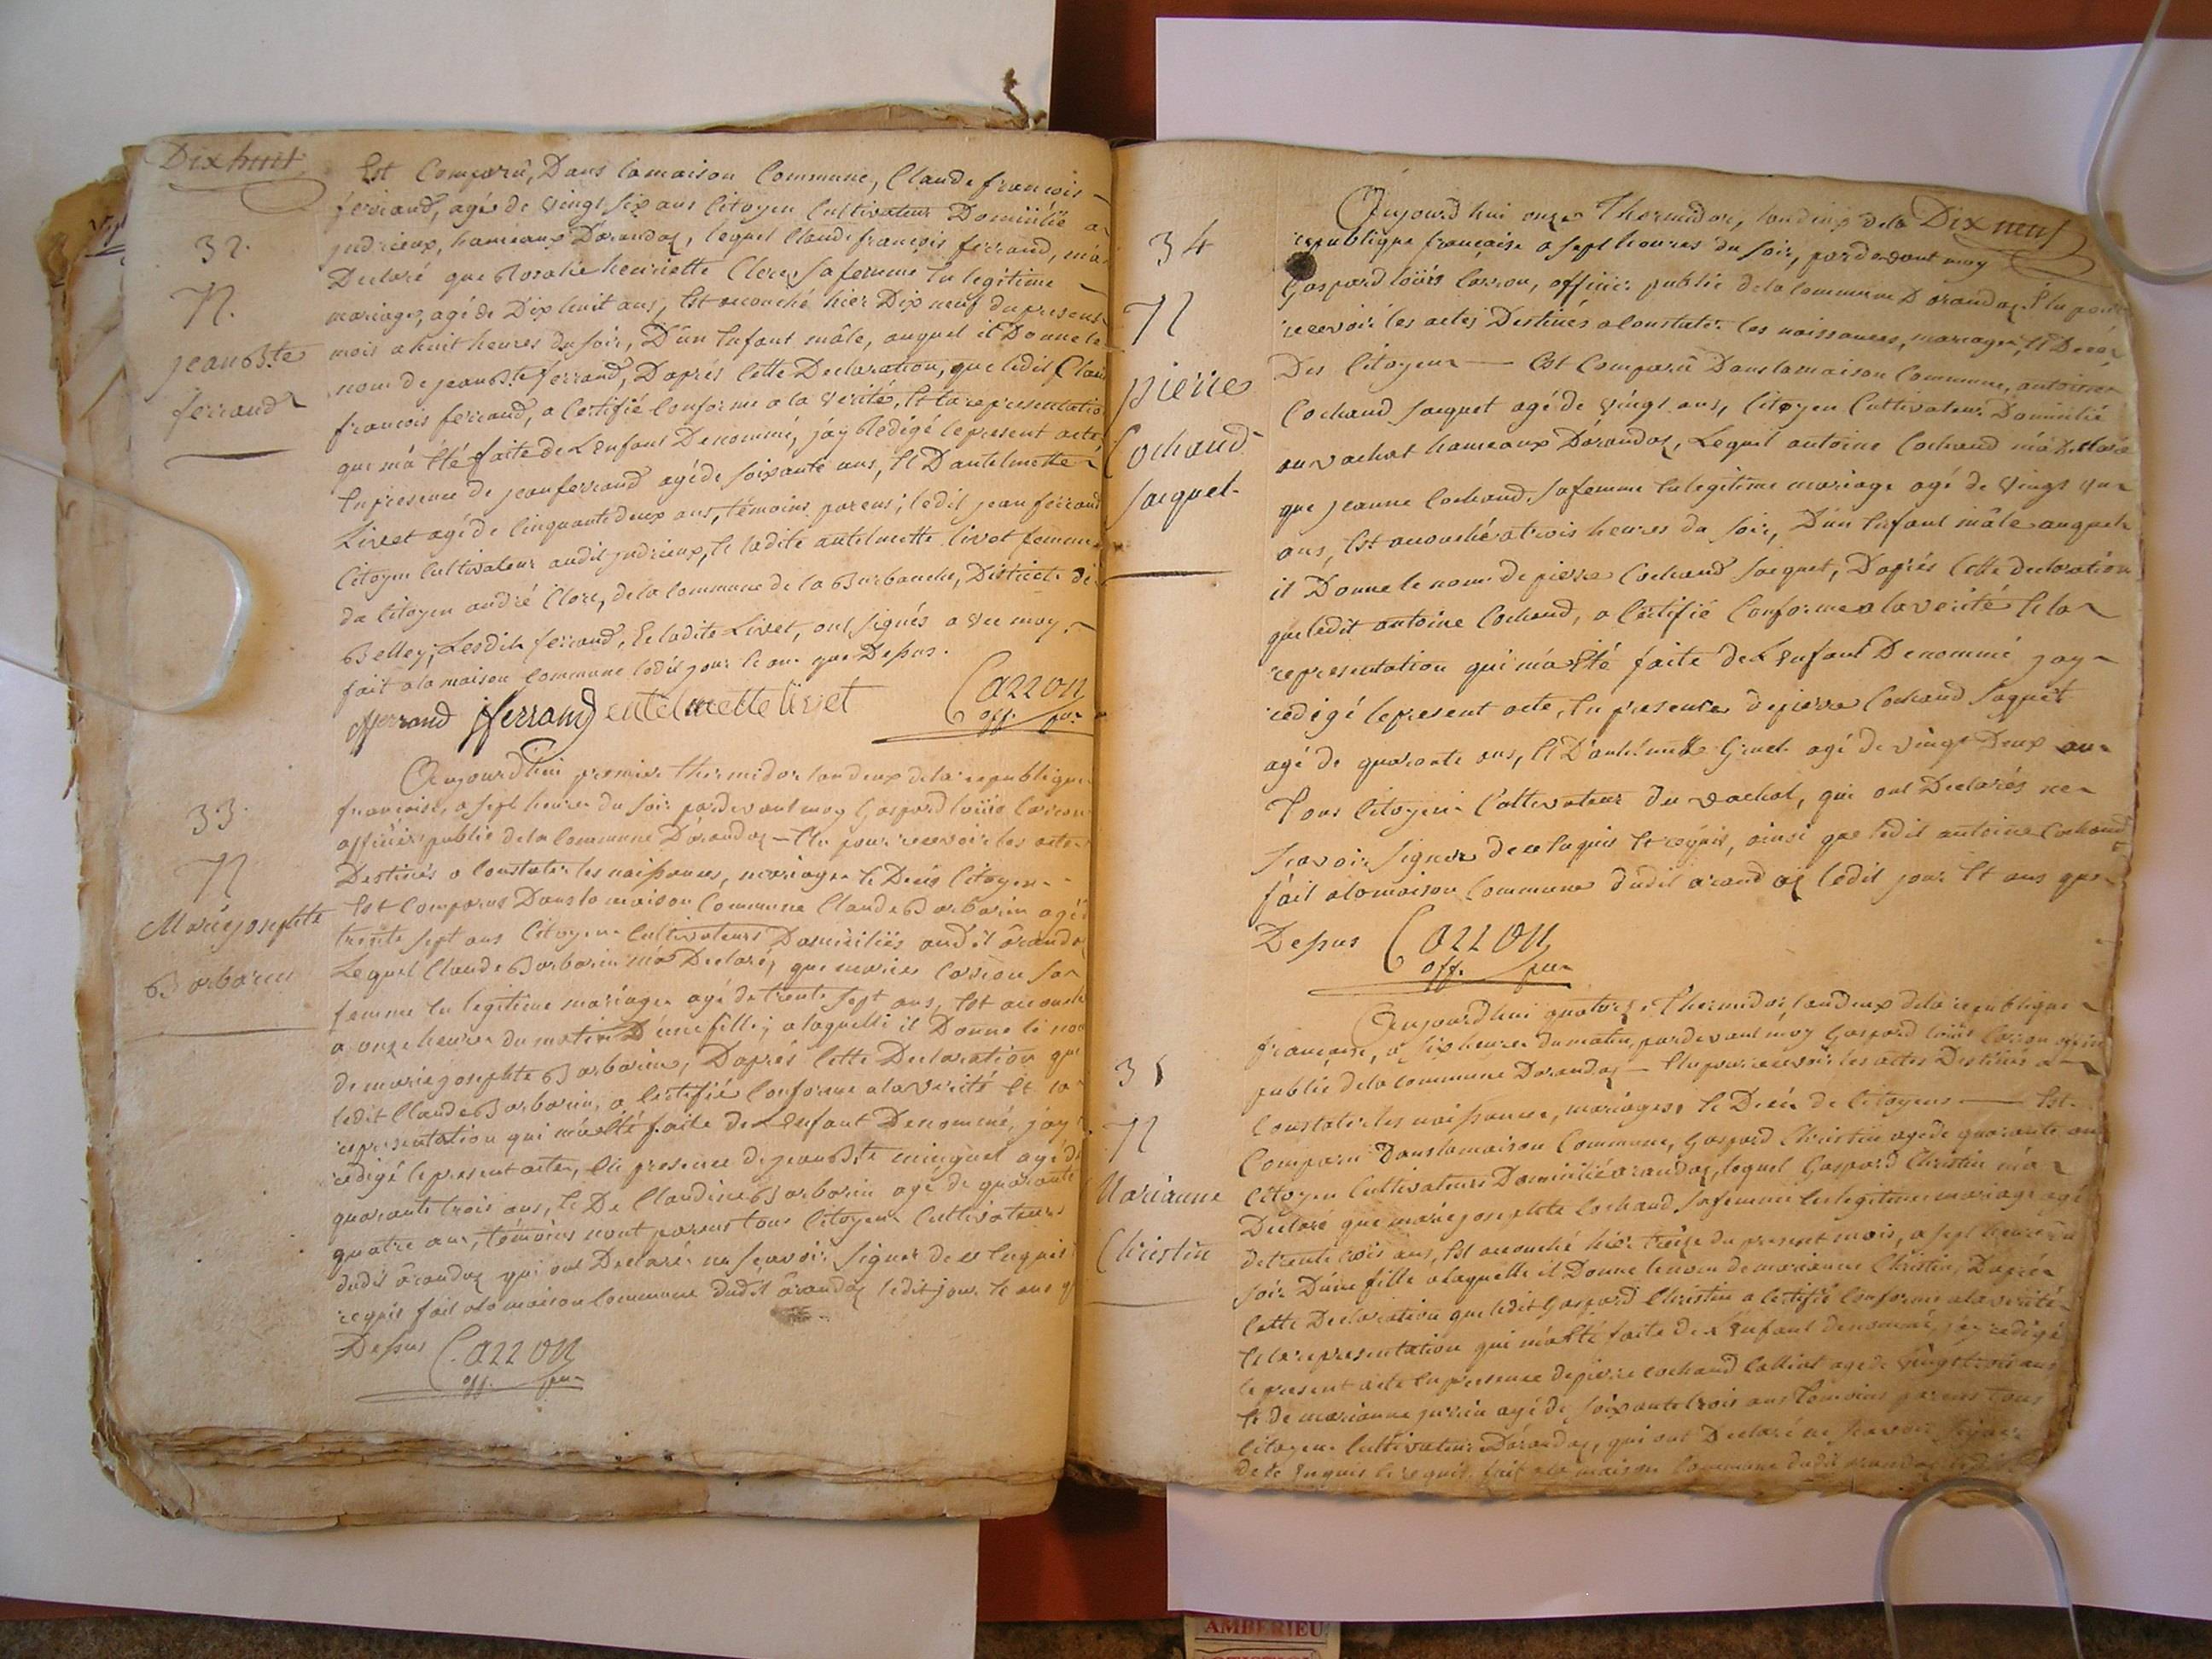 Dix huit
32.
N.
jean Bte
ferrand
Est Comparû, Dans la maison Commune, Claude françois
ferrand, agé de vingt six ans Citoyen Cultivateur Domicilié a
judrieux, hameaux Dôrandaz, lequel Claude françois ferrand, m'a
Declaré que Rosalie henriette Clerc, sa femme En legitime
mariage, agé de Dix huit ans, Est acouché hier Dix neuf du present
mois a huit heures du soir, D'ún Enfant mâle, auquel il Donne le
nom de jean Bte ferrand, D'aprés Cette Declaration, que ledit Claude
françois ferrand, a Certifié Conforme a la verité, Et la representation
qui m'a Eté faite de L'Enfant Denommé, j'ay Redigé le present acte
En presence de jean ferrand agé de soixante ans, Et D'antelmette
Livet agé de Cinquante deux ans, témoins parens; ledit jean ferrand
Citoyen Cultivateur audit judrieux, Et ladite antelmette livet femme
du Citoyen andré Clerc, de la Commune de la Burbanche, District de
Belley; Lesdits ferrand, Et ladite Livet, ont signés avec moy.
fait a la maison Commune ledit jour Et an que Dessus.
Cfferrand jfferrand entelmette livet Carron
off. pu.
33.
N
Marie josephte
Barbarin
Aujourd'hui premier thermidor l'an deux de la republique
françoise, a sept heures du soir pardevant moy Gaspard loüis Carron
officier public de la Commune D'ôrandaz — Elu pour recevoir les actes
Destinés a Constater les naissances, mariages Et Decés Citoyens
Est Comparus Dans la maison Commune Claude Barbarin agé
trente sept ans Citoyen Cultivateurs Domiciliés audit ôrandaz
Lequel Claude Barbarin m'a Declaré, que marie Carron sa
femme En legitime mariage agé de trente sept ans, Est acouché
a onze heures du matin D'ùne fille; a laquelle il Donne le nom
de marie josephte Barbarin, D'aprés Cette Declaration que
ledit Claude Barbarin, a Certifié Conforme a la verité Et la
representation qui m'a Eté faite de L'Enfant Denommé, j'ay
redigé le present acte, En presence de jean Bte minguet agé de
quarante trois ans, Et De Claudine Barbarin agé de quarante
quatre ans, témoins nont parens tous Citoyens Cultivateurs
dudit ôrandaz qui ont Declaré ne sçavoir signer de ce Enquis
requis fait a la maison Commune dudit ôrandaz ledit jour Et ans que
Dessus Carron
off. pu.
Dix neuf
34
N
pierre
Cochand
Jacquet
Aujourd'hui onze Thermidor, l'an deux de la
republique française a sept heures du soir, pardevant moy
Gaspard loüis Carron, officier public de la Commune D'orandaz Elu pour
recevoir les actes Destinés a Constater les naissances, mariages, Et Decés
Des Citoyens — Est Comparû Dans la maison Commune, antoine
Cochand Jacquet agé de vingt ans, Citoyen Cultivateur Domicilié
au vachat hameaux D'orandaz, Lequel antoine Cochand m'a Declaré
que jeanne Cochand sa femme En legitime mariage agé de vingt un
ans, Est acouché a trois heures du soir, D'ùn Enfant mâle auquel
il Donne le nom de pierre Cochand Jacquet, D'aprés Cette declaration
que ledit antoine Cochand, a Certifié Conforme a la verité Et la
representation qui m'a Eté faite de L'Enfant Denommé j'ay
redigé le present acte, En presence de pierre Cochand Jaquét
agé de quarante ans, Et D'anthelmette agé de vingt Deux ans
Tous Citoyens Cultivateur du vachat, qui ont Declarés ne
sçavoir signer de ce Enquis Et requis, ainsi que ledit antoine Cochand
fait a la maison Commune dudit orandaz ledit jour Et ans que
Dessus Carron
off. pu.
35
N
Marianne
Christin
Aujourd'hui quatorze Thermidor, l'an deux de la republique
française, a six heures du matin, pardevant moy Gaspard loüis Carron officier
public de la commune Dorandaz — Elu pour recevoir les actes Destinés a
Constater les naissances, mariages, Et Decés de Citoyens — Est
Comparu Dans la maison Commune, Gaspard Christin agé de quarante ans
Citoyen Cultivateurs Domicilié orandaz, lequel Gaspard Christin m'a
Declaré que marie josephte Cochand sa femme En legitime mariage agé
de trente trois ans, Est acouché hier treize du present mois, a sept heures du
soir D'ùne fille a laquelle il Donne le nom de marianne Christin, D'aprés
Cette Declaration que ledit Gaspard Christin a Certifié Conforme a la verité
Et la representation qui m'a Eté faite de L'Enfant denommé, j'ay redigé
le present acte En presence de pierre cochand agé de vingt trois ans
Et de marianne agé de soixante trois ans Temoins parens tous
Citoyens Cultivateurs D'orandaz, qui ont Declaré ne sçavoir signer
de ce Enquis Et requis. fait a la maison Commune dudit orandaz ledit
AMBERIEU